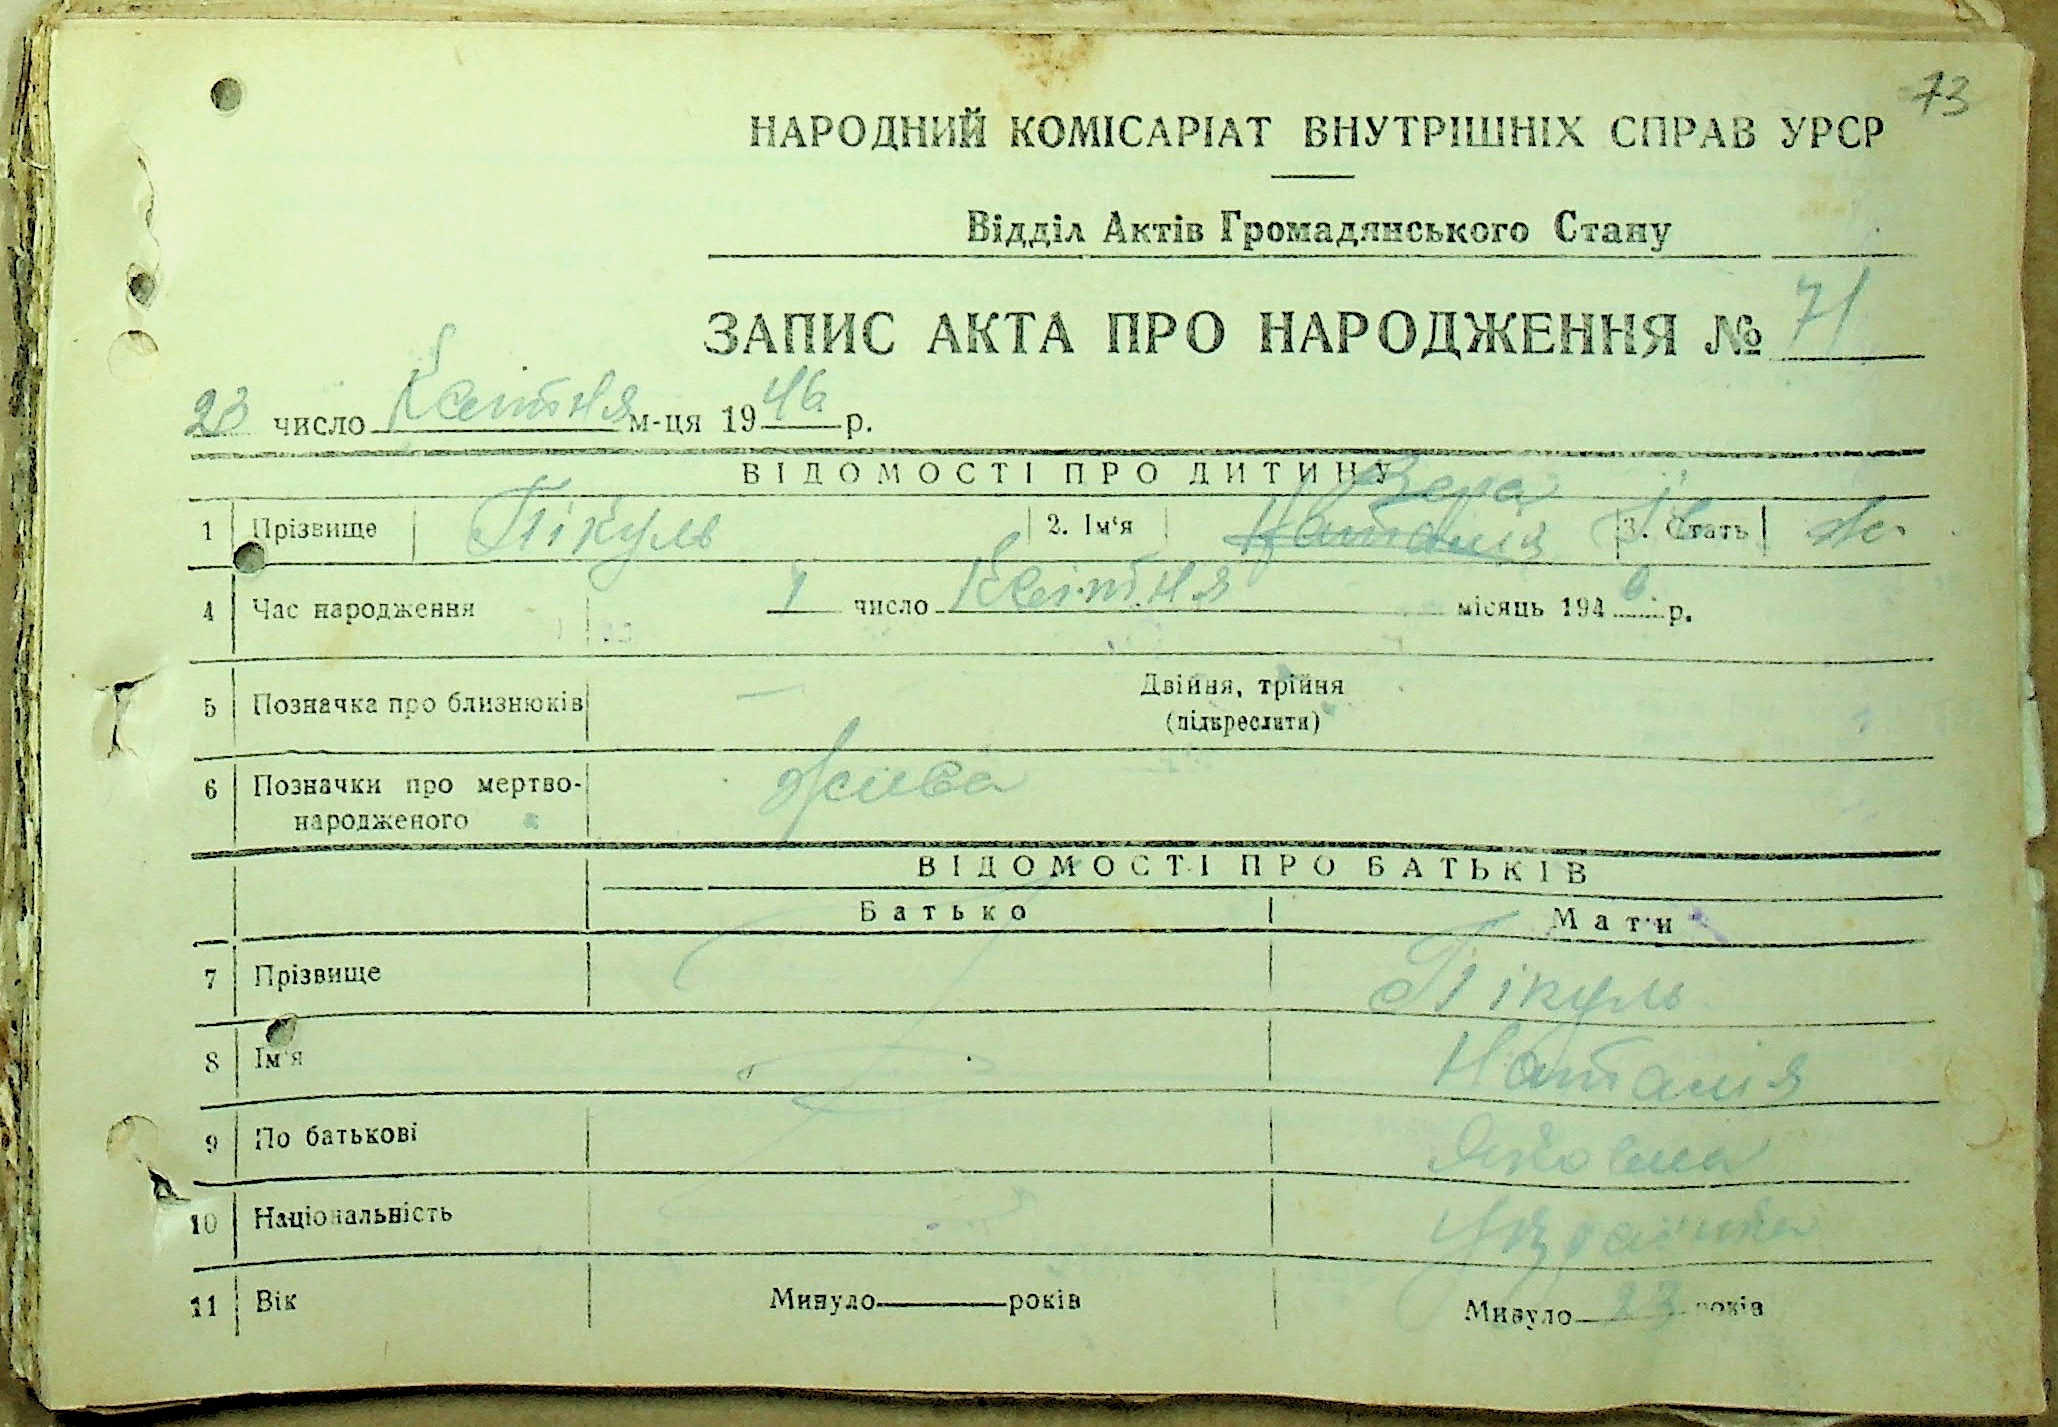 73
НАРОДНИЙ КОМІСАРІАТ ВНУТРІШНІХ СПРАВ УРСР
Відділ Актів Громадянського Стану
ЗАПИС АКТА ПРО НАРОДЖЕННЯ № 71
23 число Квітня м-ця 1946 р.
ВІДОМОСТІ ПРО ДИТИНУ
Вера
1 Прізвище Пікуль 2. Ім‘я Наталія 3. Стать ж.
4 Час народження 1 число Квітня місяць 1946 р.
5 Позначка про близнюків — Двійня, трійня
(підкреслити)
6 Позначки про мертво-
народженого жива
ВІДОМОСТІ ПРО БАТЬКІВ
Батько Мати
7 Прізвище Пікуль
8 Ім‘я Наталія
9 По батькові Яковна
10 Національність Українка
11 Вік Минуло — років Минуло 23 років